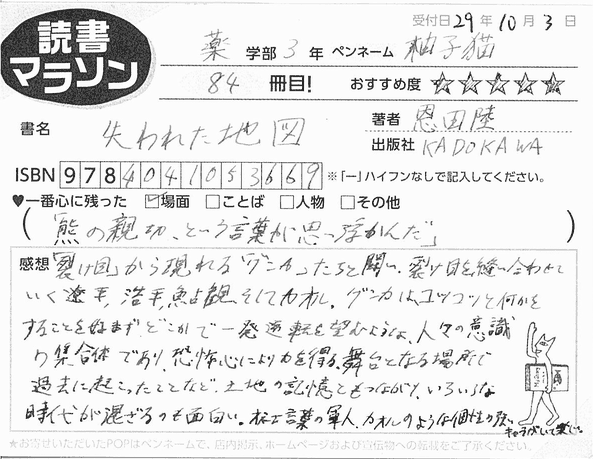 受付日 29年 10月 3日
読書マラソン
薬 学部 3 年 ペンネーム 柚子猫
84 冊目! おすすめ度 ☆☆☆☆☆
書名 失われた地図
著者 恩田陸
出版社 KADOKAWA
ISBN 9784041053669 ※「ー」ハイフンなしで記入してください。
♥一番心に残った ☑場面 □ことば □人物 □その他
(「熊の親切、という言葉が思い浮かんだ」)
感想 「裂け目」から現れる「グンカ」たちと闘い、裂け目を縫い合わせて
いく遼平、浩平、鮎観、そしてカオル。グンカは、コツコツと何かを
することを好まず、どこかで一発逆転を望むような、人々の意識
の集合体であり、恐怖心により力を得る。舞台となる場所で
過去に起こったことなど、土地の記憶ともつながり、いろいろな
時代が混ざるのも面白い。桜士言葉の軍人、カオルのような個性の強い
キャラがいて楽しい。
★お寄せいただいたPOPはペンネームで、店内掲示、ホームページおよび宣伝物への転載をご了承ください。